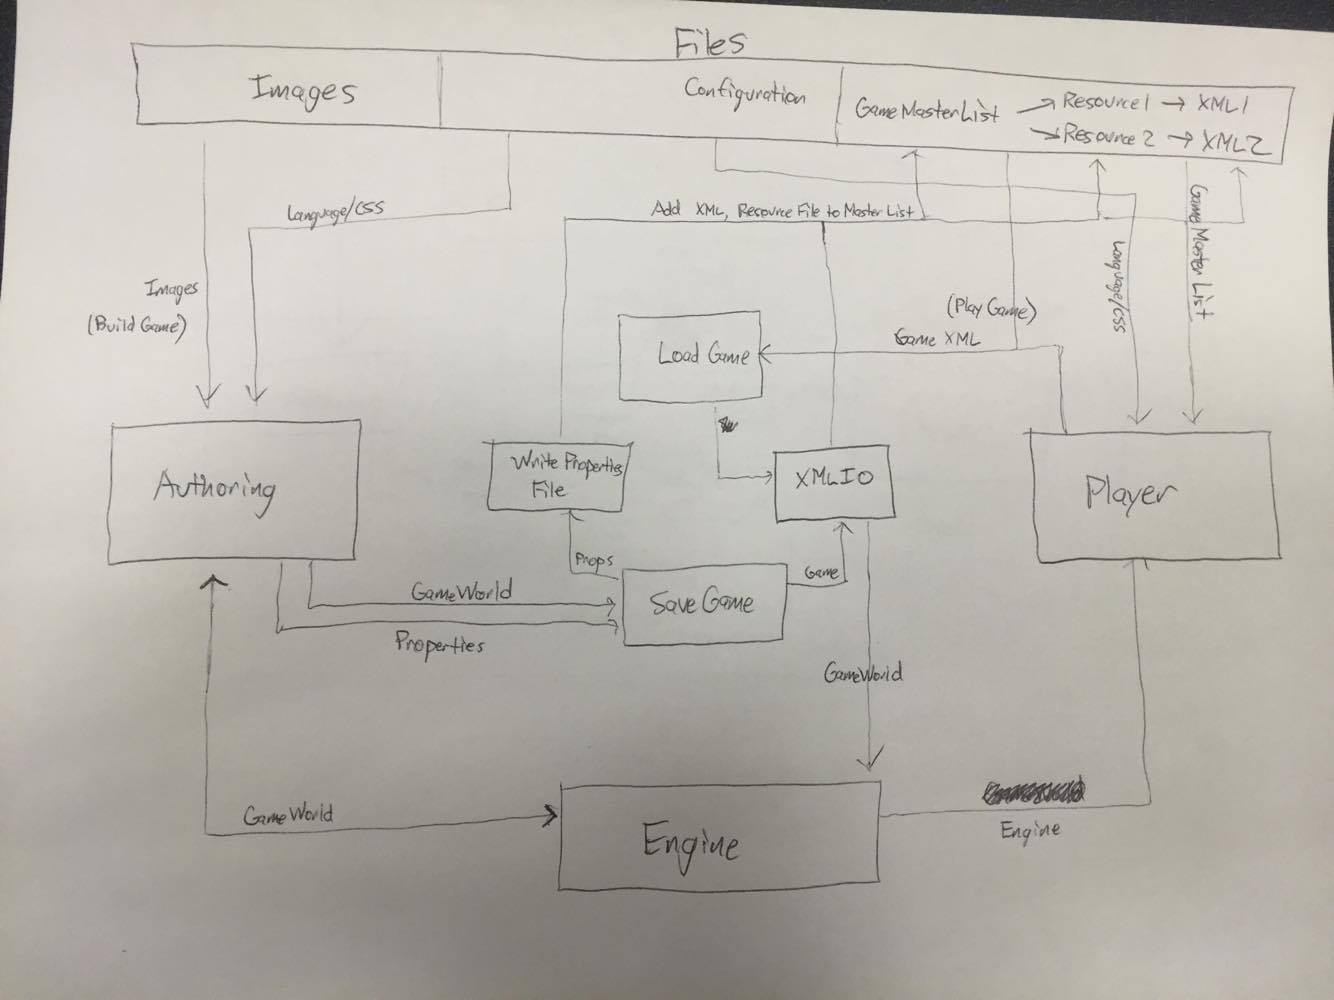 Files
Images
Configuration
GameMasterList
Resource1 → XML1
Resource2 → XML2
Language/CSS
Add XML, Resource File to Master List
Images
(Build Game)
(Play Game)
Game XML
Language/CSS
Game Master List
Load Game
Authoring
Write Properties
File
XMLIO
Player
Props
Game
GameWorld
Save Game
Properties
GameWorld
GameWorld
Engine
Engine